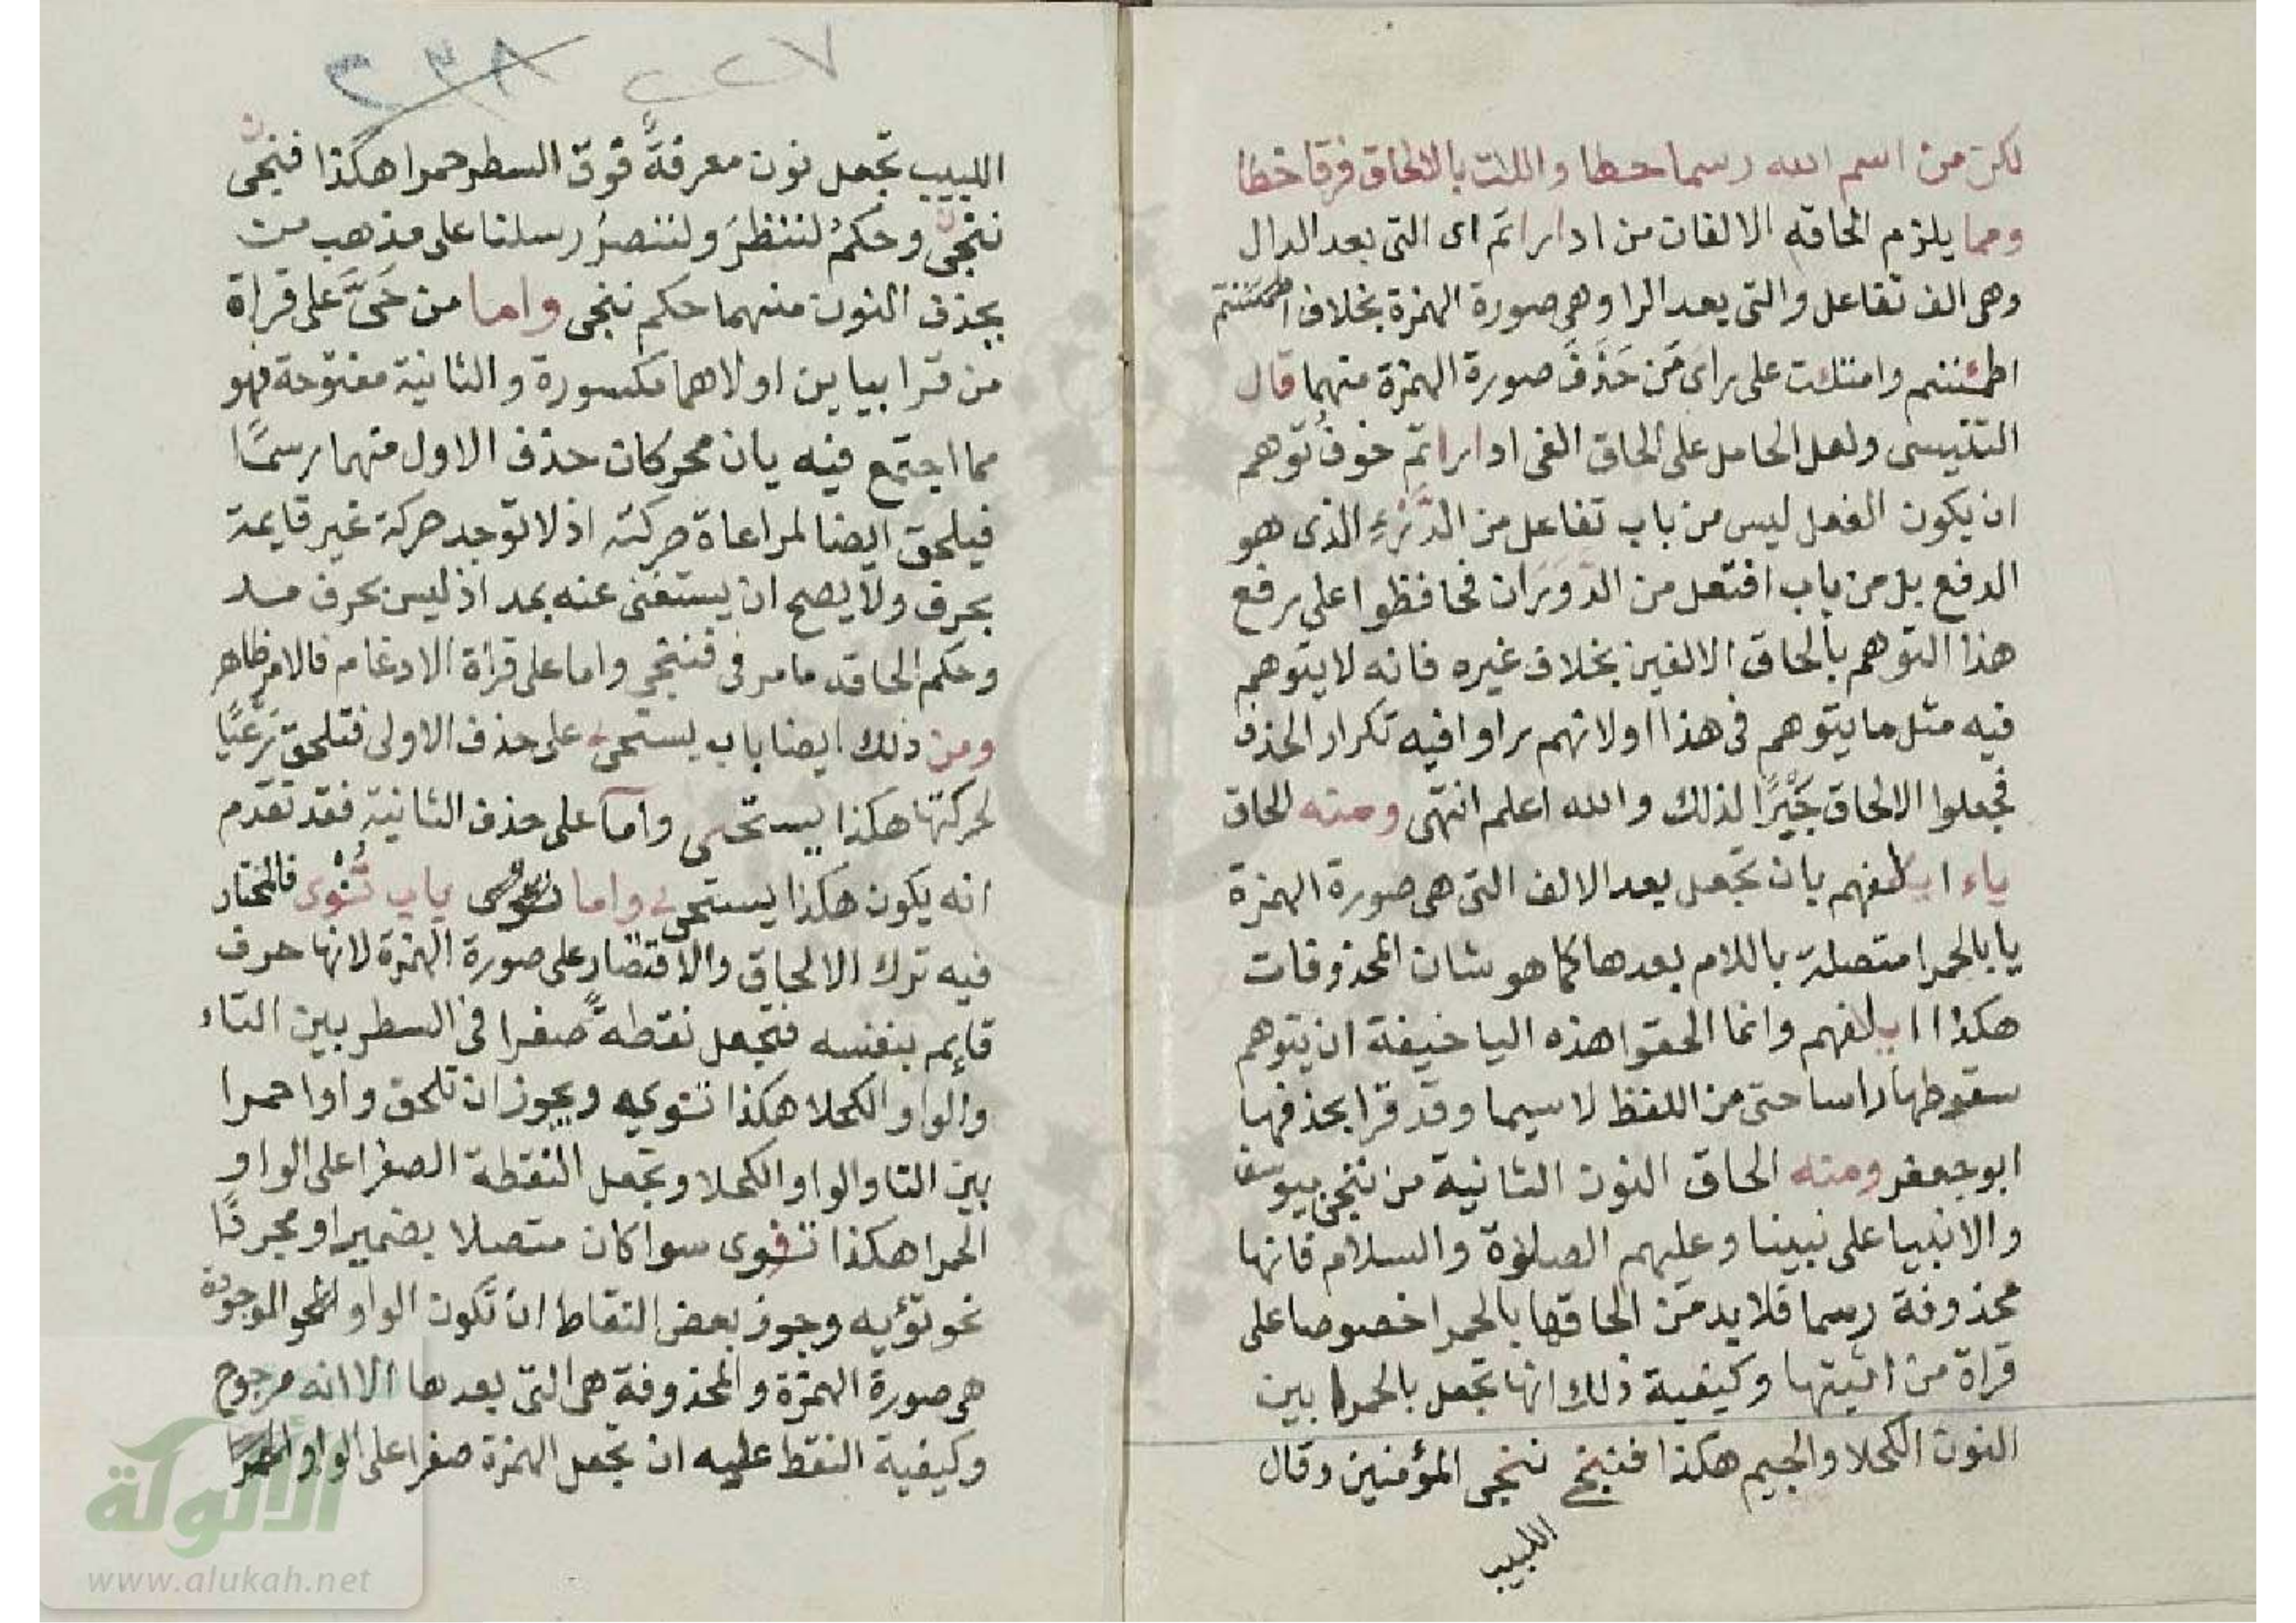 لكن من اسم الله رسما حطا واللت بالالحاق فرقا خطا
ومما يلزم الحاقه الالفان من اداراتم اى التى بعد الدال
وهى الف تفاعل والتى بعد الرا وهى صورة الهمزة بخلاف
اطمئننتم وامتلئت على راى من حَذَفَ صورة الهمزة منهما قال
التنيسى ولعل الحامل على الحاق الفى اداراتم خوف توهم
ان يكون الفعل ليس من باب تفاعل من الدَّرْءِ الذى هو
الدفع بل من باب افتعل من الدوَرَان فحافظوا على رفع
هذا التوهم بالحاق الالفين بخلاف غيره فانه لا يتوهم
فيه مثل ما يتوهم فى هذا اولانهم راوا فيه تكرار الحذف
فجعلوا الالحاق جَبْرًا لذلك والله اعلم انتهى ومنه الحاق
ياء ايلفهم بان تجعل بعد الالف التى هى صورة الهمزة
يا بالحمرا متصلة باللام بعدها كما هو شان المحذوفات
هكذا ايلفهم وانما الحقوا هذه اليا خيفة ان يتوهم
سقوطها راسا حتى من اللفظ لا سيما وقد قرا بحذفها
ابو جعفر ومنه الحاق النون الثانية من ننجى بيوسف
والانبيا على نبينا وعليهم الصلوة والسلام فانها
محذوفة رسما فلا بد من الحاقها بالحمرا خصوصا على
قراة من اثبتها وكيفية ذلك انها تجعل بالحمرا بين
النون الكحلا والجيم هكذا فننجى ننجى المؤمنين وقال
اللبيب
٢٣٨ ٢٢٧
اللبيب تجعل نون معرفةً فوق السطر حمرا هكذا فنجى
ننجى وحكمُ لننظرَ ولننصرُ رسلنا على مذهب من
يحذف النون منهما حكم ننجى واما من حَىَّ على قراة
من قرا بيايين اولاهما مكسورة والثانية مفتوحة فهو
مما اجتمع فيه يان محركان حذف الاول منهما رسمًا
فيلحق ايضا لمراعاة حركته اذ لا توجد حركة غير قايمة
بحرف ولا يصح ان يستغنى عنه بمد اذ ليس بحرف مد
وحكم الحاقه ما مر فى فننجى واما على قراة الادغام فالامر ظاهر
ومن ذلك ايضا باب يستحى على حذف الاولى فتلحق رَعْيًا
لحركتها هكذا يستحى واما على حذف الثانية فقد تقدم
انه يكون هكذا يستحى واما باب تُئْوى فالمختار
فيه ترك الالحاق والاقتصار على صورة الهمزة لانها حرف
قايم بنفسه فتجعل نقطةً صفرا فى السطر بين التاء
والواو الكحلا هكذا تـويه ويجوز ان تلحق واوا حمرا
بين التا والواو الكحلا وتجعل النقطة الصفرا على الواو
الحمرا هكذا تـؤوى سوا كان متصلا بضمير او مجردًا
نحو تؤيه وجوز بعض النقاط ان تكون الواو الموجودة
هى صورة الهمزة والمحذوفة هى التى بعدها الا انه مرجوح
وكيفية النقط عليه ان تجعل الهمزة صفرا على الواو
الألوكة
www.alukah.net